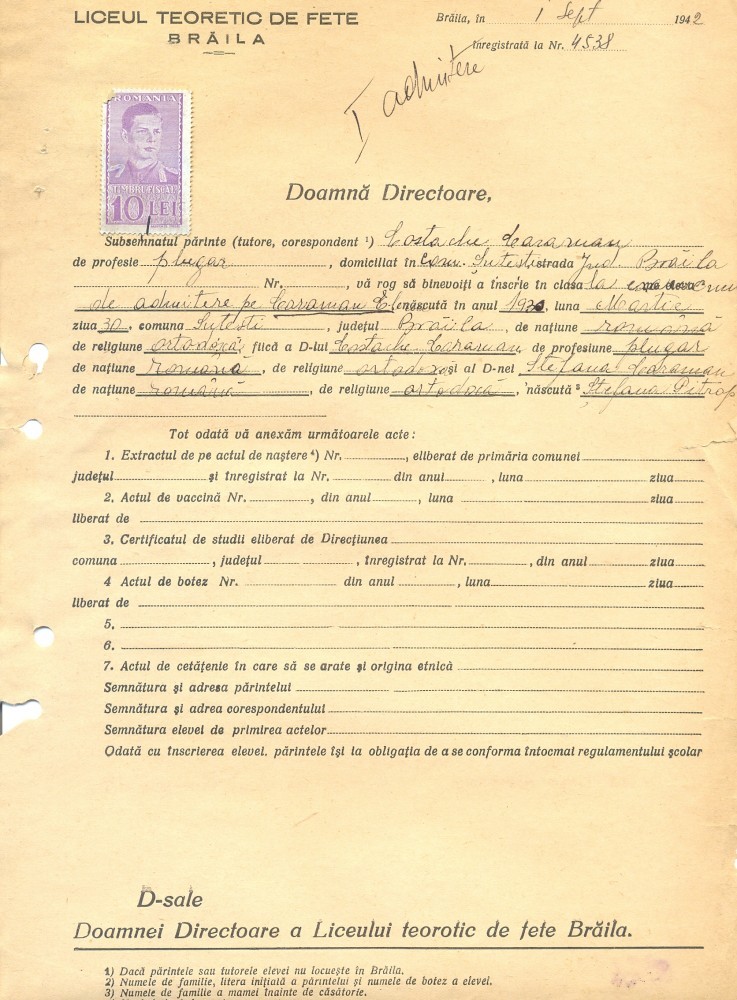 LICEUL TEORETIC DE FETE
BRĂILA
Brăila, în 1 Sept 1942
Înregistrată la Nr. 4538
I admitere
ROMANIA
TIMBRU FISCAL
10 LEI
Doamnă Directoare,
Subsemnatul părinte (tutore, corespondent ¹) Costache Caraman
de profesie plugar, domiciliat în com. Șutești strada Jud. Brăila
Nr. , vă rog să binevoiți a înscrie în clasa la
de admitere pe Caraman Elena născută în anul 19, luna Martie
ziua 30, comuna Șutești, județul Brăila, de națiune română
de religiune ortodoxă, fiică a D-lui Costache Caraman, de profesiune plugar
de națiune română, de religiune ortodoxă și al D-nei Ștefana Caraman
de națiune română, de religiune ortodoxă, născută ³ Ștefana Pitrop
Tot odată vă anexăm următoarele acte :
1. Extractul de pe actul de naștere ⁴) Nr. , eliberat de primăria comunei
județul și înregistrat la Nr. din anul , luna ziua
2. Actul de vaccină Nr. , din anul , luna ziua
liberat de
3. Certificatul de studii eliberat de Direcțiunea
comuna , județul , înregistrat la Nr. , din anul ziua
4 Actul de botez Nr. din anul , luna ziua
liberat de
5.
6.
7. Actul de cetățenie în care să se arate și origina etnică
Semnătura și adresa părintelui
Semnătura și adrea corespondentului
Semnătura elevei de primirea actelor
Odată cu înscrierea elevei, părintele își la obligația de a se conforma întocmai regulamentului școlar
D-sale
Doamnei Directoare a Liceului teorotic de fete Brăila.
1) Dacă părintele sau tutorele elevei nu locuește în Brăila.
2) Numele de familie, litera inițială a părintelui și numele de botez a elevei.
3) Numele de familie a mamei înainte de căsătorie.